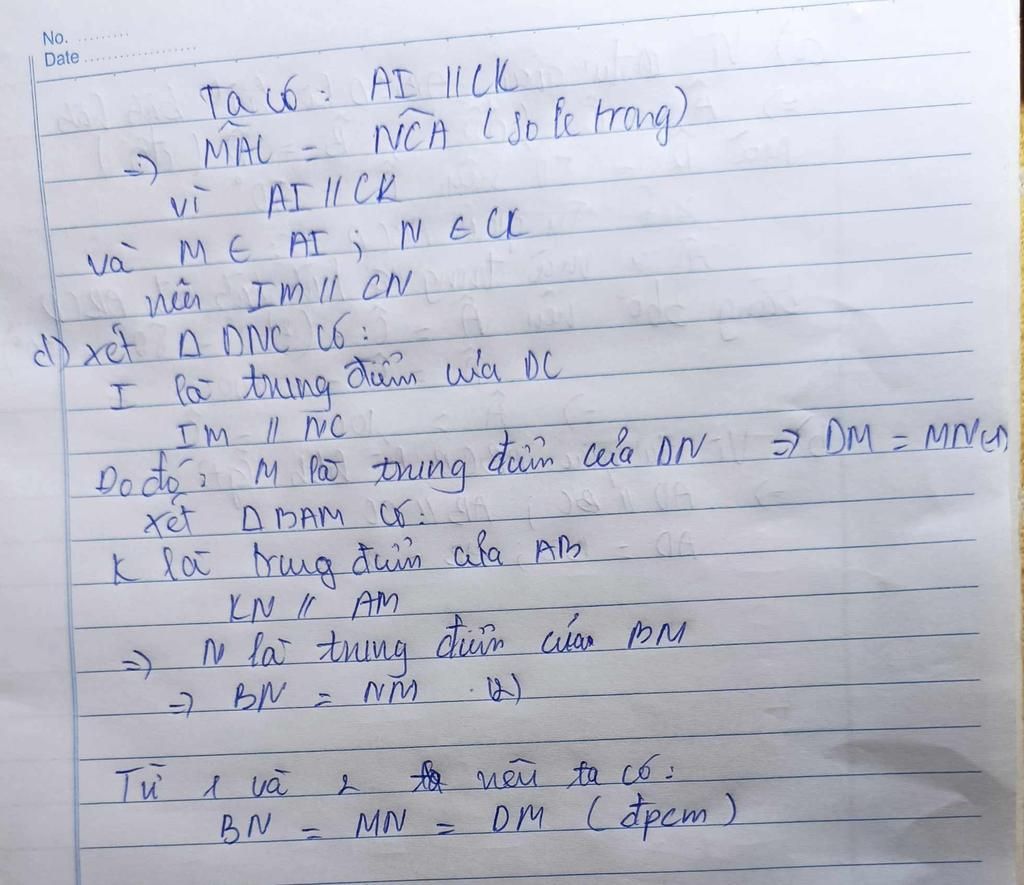 No. .........
Date ....................
Ta có: AI // CK
=> M̂AC = NĈA (so le trong)
vì AI // CK
và M ∈ AI ; N ∈ CK
nên IM // CN
d) xét Δ DNC có:
I là trung điểm của DC
IM // NC
Do đó: M là trung điểm của DN => DM = MN (1)
xét Δ BAM có:
K là trung điểm của AB
KN // AM
=> N là trung điểm của BM
=> BN = NM (2)
Từ 1 và 2 nên ta có:
BN = MN = DM (đpcm)